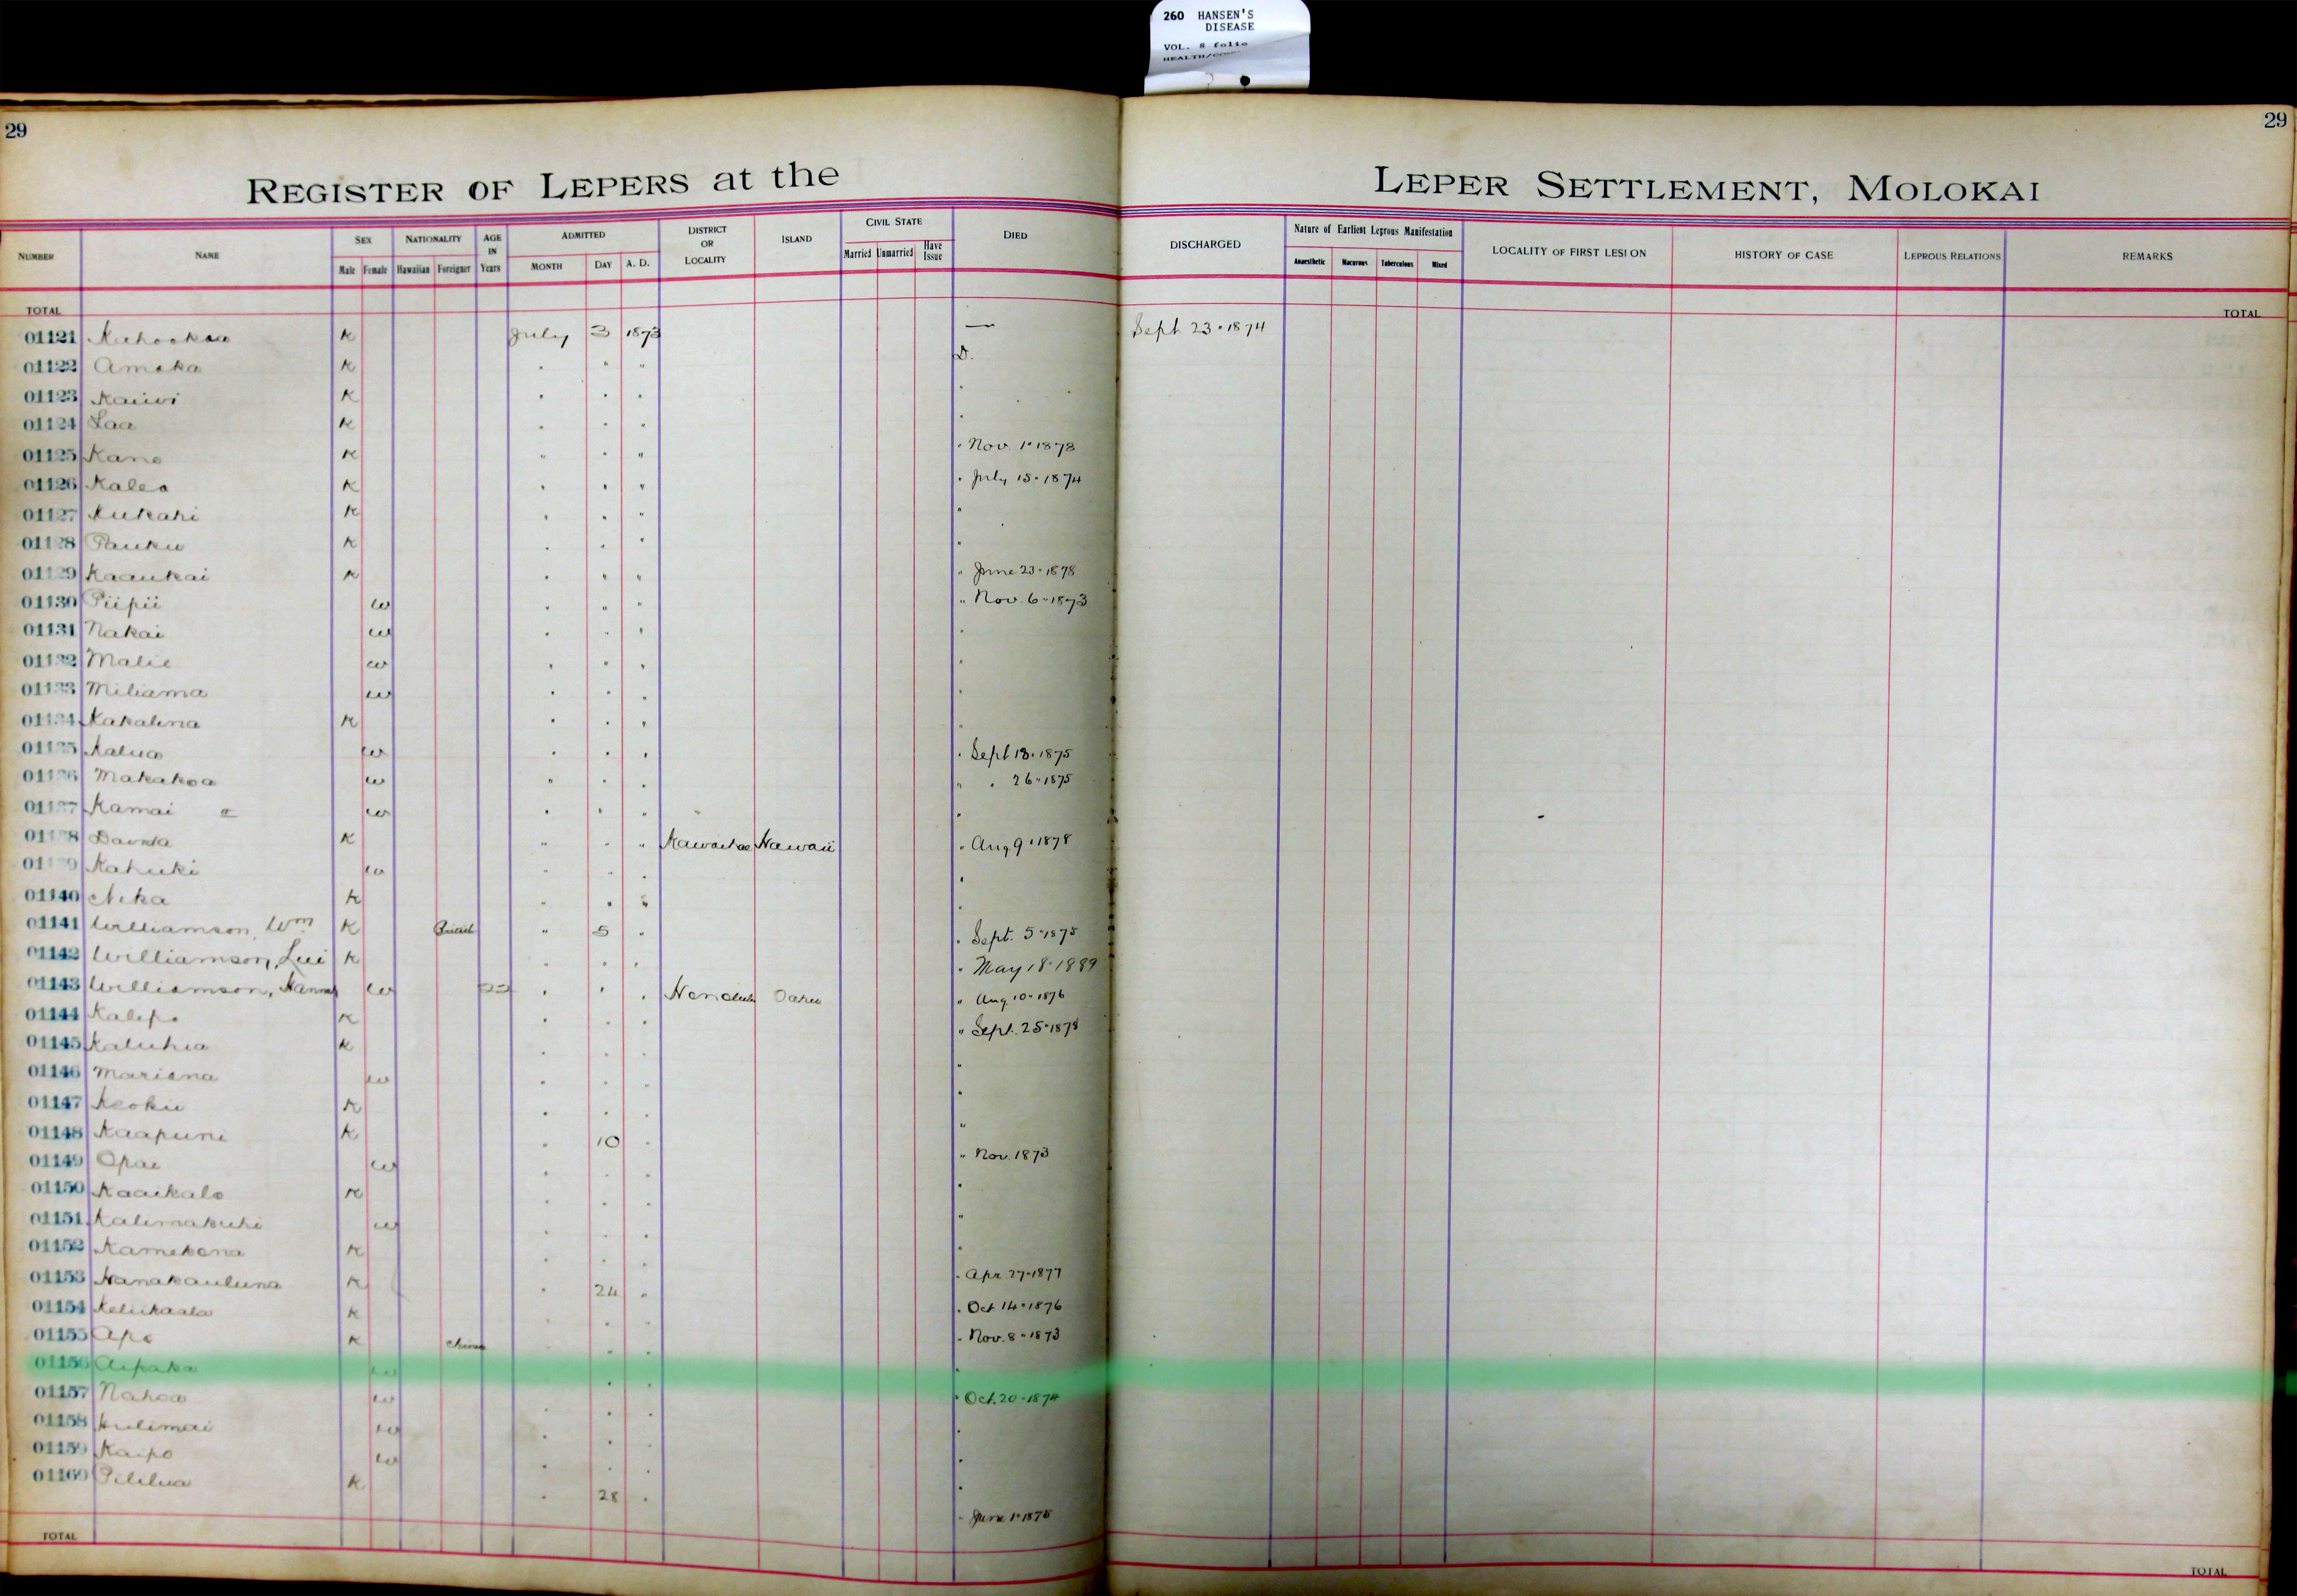 260 HANSEN'S
DISEASE
VOL. 8 folio
29
29
REGISTER OF LEPERS at the LEPER SETTLEMENT, MOLOKAI
NUMBER NAME SEX NATIONALITY AGE IN Years ADMITTED DISTRICT OR LOCALITY ISLAND CIVIL STATE DIED DISCHARGED Nature of Earliest Leprous Manifestation LOCALITY OF FIRST LESION HISTORY OF CASE LEPROUS RELATIONS REMARKS
Male Female Hawaiian Foreigner MONTH DAY A. D. Married Unmarried Have Issue Anaesthetic Macurous Tuberculous Mixed
TOTAL TOTAL
01121 K July 3 1873 — Sept 23 · 1874
01122 Amaka K " " " D.
01123 Kaiwi K " " " "
01124 Laa K " " " "
01125 Kane K " " " " Nov. 1 · 1878
01126 Kalea K " " " " July 15 · 1874
01127 Kukahi K " " " "
01128 Pauku K " " " "
01129 Kaaukai K " " " " June 23 · 1878
01130 Piipii W " " " " Nov. 6 · 1873
01131 Nakai W " " " "
01132 Malie W " " " "
01133 Miliama W " " " "
01134 Kakalina K " " " "
01135 Kalua W " " " " Sept 18 · 1875
01136 Makakoa W " " " " " 26 · 1875
01137 Kamai W " " " "
01138 K " " " Kawaihae Hawaii " Aug 9 · 1878
01139 Kahuki W " " " "
01140 Nika K " " " "
01141 Williamson, Wm K British " 5 " " Sept. 5 · 1875
01142 Williamson, Lui K " " " " May 18 · 1889
01143 Williamson, Hannah W " " " Honolulu Oahu " Aug 10 · 1876
01144 Kalepo K " " " " Sept. 25 · 1878
01145 Kaluhia K " " " "
01146 Mariana W " " " "
01147 Keoku K " " " "
01148 Kaapuni K " 10 " "
01149 Opae W " " " " Nov. 1873
01150 Kaaikalo K " " " "
01151 Kalimakuhi W " " " "
01152 Kamekona K " " " "
01153 Nanakauluna K " 24 " " Apr 27 · 1877
01154 Keliikaala K " " " " Oct 14 · 1876
01155 Apo K China " " " " Nov. 8 · 1873
01156 Aipaka W " " " "
01157 Nahoa W " " " " Oct. 20 · 1874
01158 Kulimai W " " " "
01159 Kaipo W " " " "
01160 Pililua K " 28 " " June 1 · 1875
TOTAL TOTAL